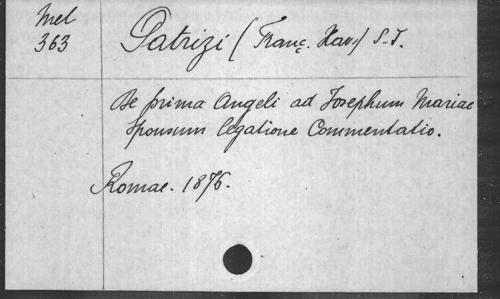 Mel
363
Patrizi (Franç. Xav.) S.J.
De prima Angeli ad Josephum Mariae
Sponsum legatione Commentatio.
Romae. 1876.